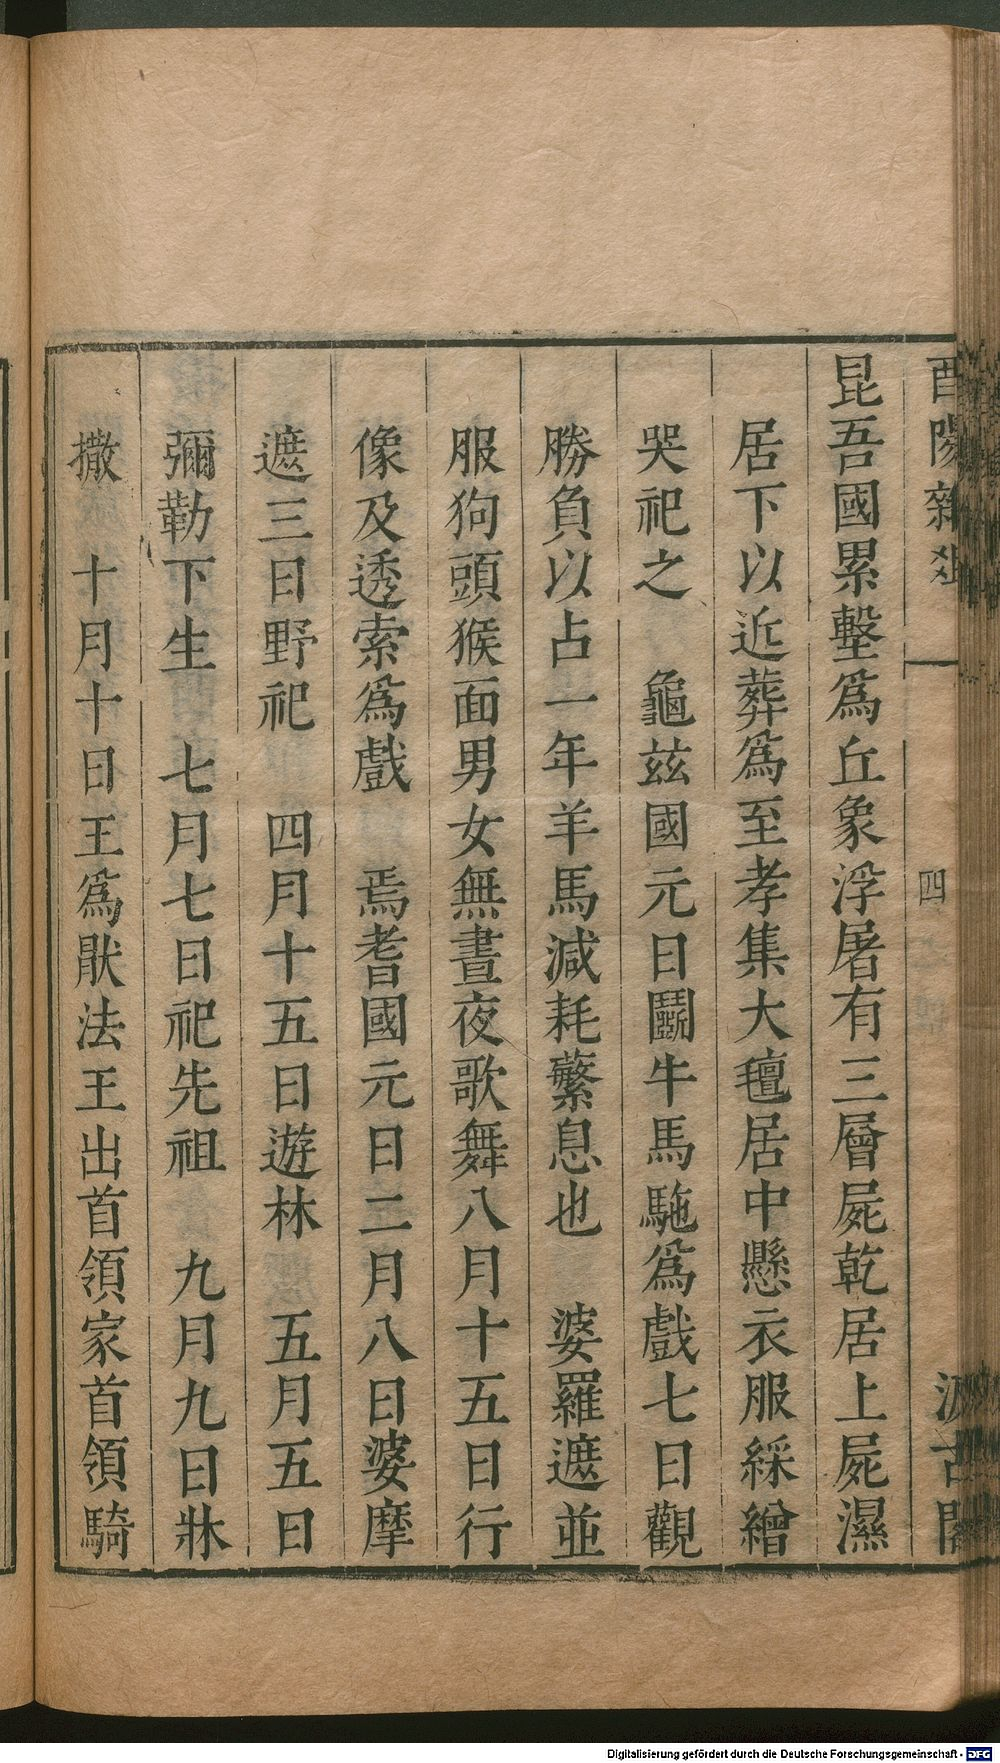 酉陽雜俎
四
汲古閣
昆吾國累墼爲丘象浮屠有三層屍乾居上屍濕
居下以近葬爲至孝集大氊居中懸衣服綵繒
哭祀之 龜茲國元日鬬牛馬駞爲戲七日觀
勝負以占一年羊馬減耗繁息也 婆羅遮並
服狗頭猴面男女無晝夜歌舞八月十五日行
像及透索爲戲 焉耆國元日二月八日婆摩
遮三日野祀 四月十五日遊林 五月五日
彌勒下生 七月七日祀先祖 九月九日牀
撒 十月十日王爲猒法王出首領家首領騎
Digitalisierung gefördert durch die Deutsche Forschungsgemeinschaft - DFG